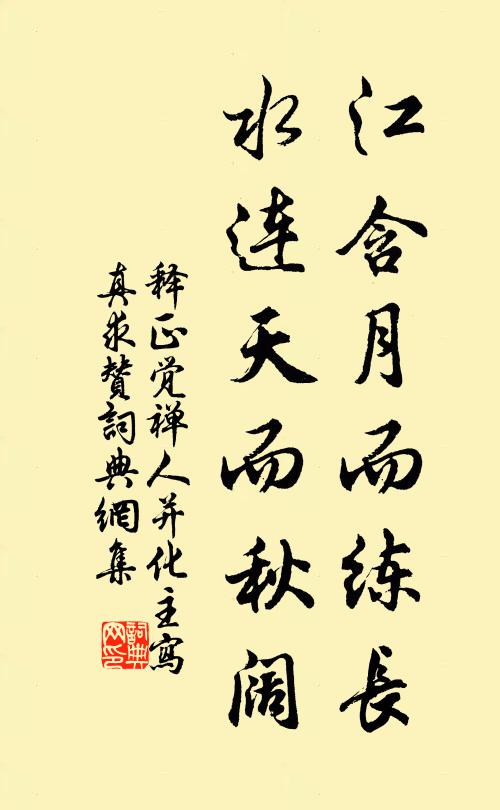 江含月而练長
水连天而秋阔
释正觉禅人并化主寫
真求赞詞典網集
詞典网印